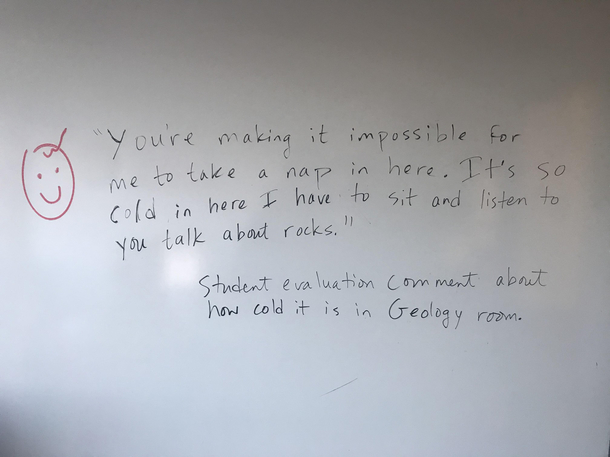 "You're making it impossible for
me to take a nap in here. It's so
cold in here I have to sit and listen to
you talk about rocks."
Student evaluation comment about
how cold it is in Geology room.